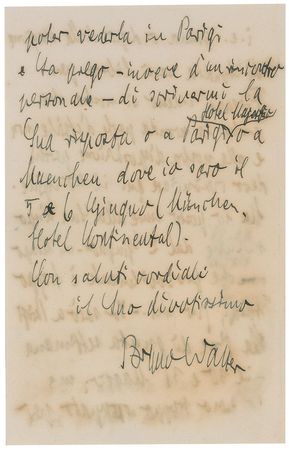 poter vederla in Parigi
e La prego – invece d'un incontro
personale – di scrivermi la
Hotel Majestic
Sua risposta o a Parigi o a
Muenchen dove io sarò il
5 o 6 Giugno (München,
Hotel Continental).
Con saluti cordiali
il Suo divotissimo
Bruno Walter